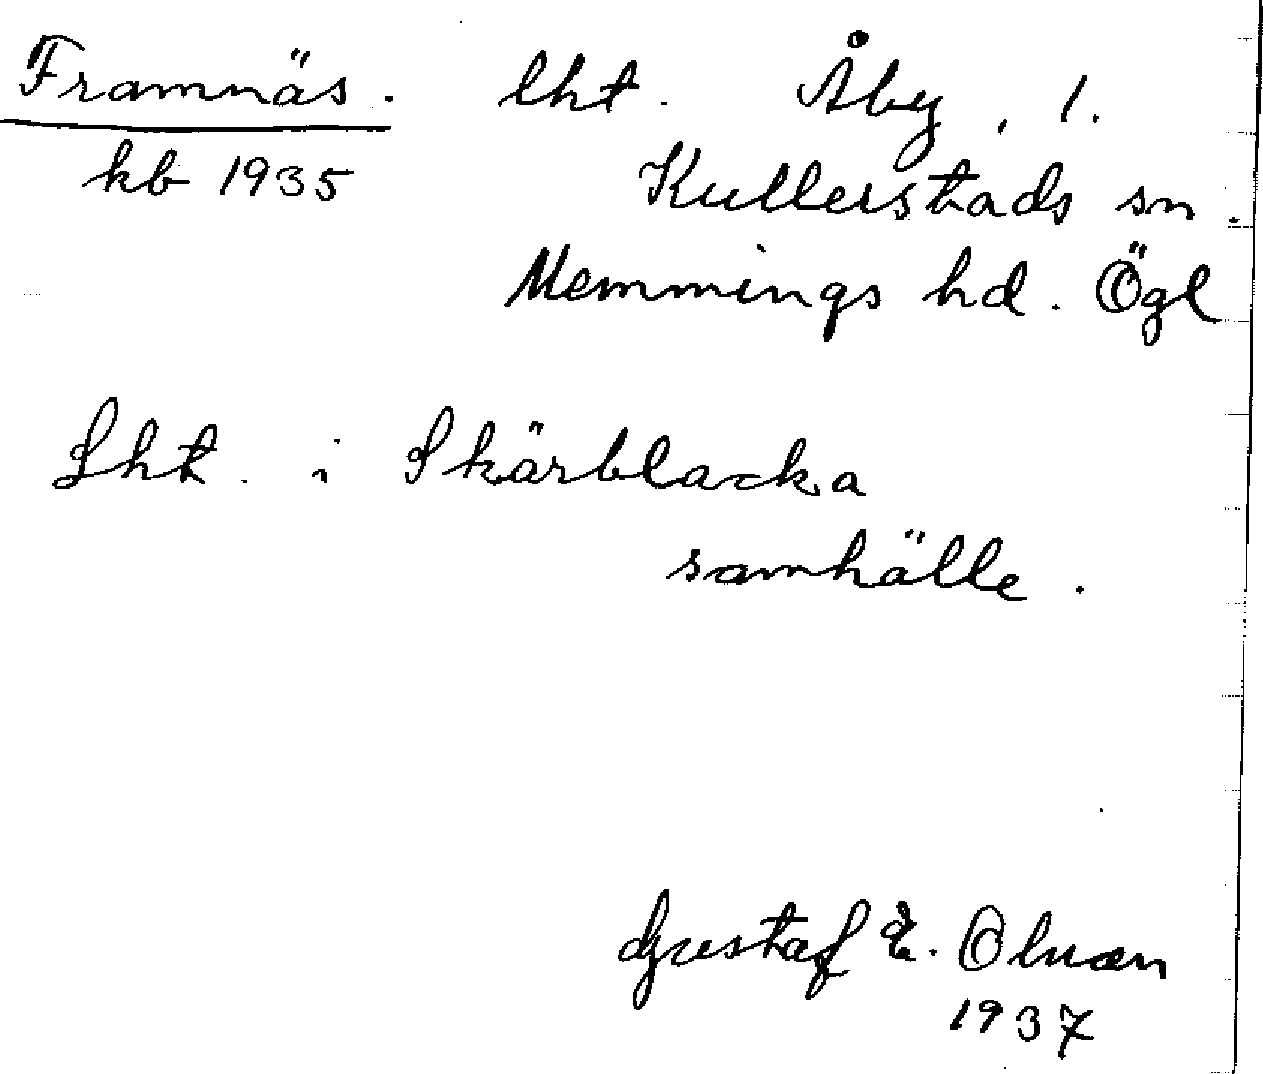 Framnäs. lht. Åby, 1.
kb 1935 Kullerstads sn.
Memmings hd. Ögl
Lht. i Skärblacka
samhälle.
Gustaf E. Olusæn
1937